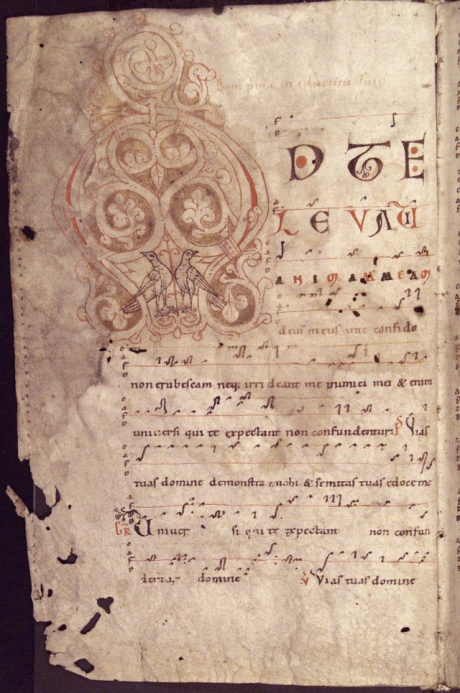 Dom prima in adventu
D TE
LEVAVI
ANIMAM MEAM
deus meus in te confido
non erubescam neq; irrideant me inimici mei & enim
universi qui te expectant non confundentur. Vias
tuas domine demonstra michi & semitas tuas edoce me
GR Univer si qui te expectant non confun
dentur domine V Vias tuas domine